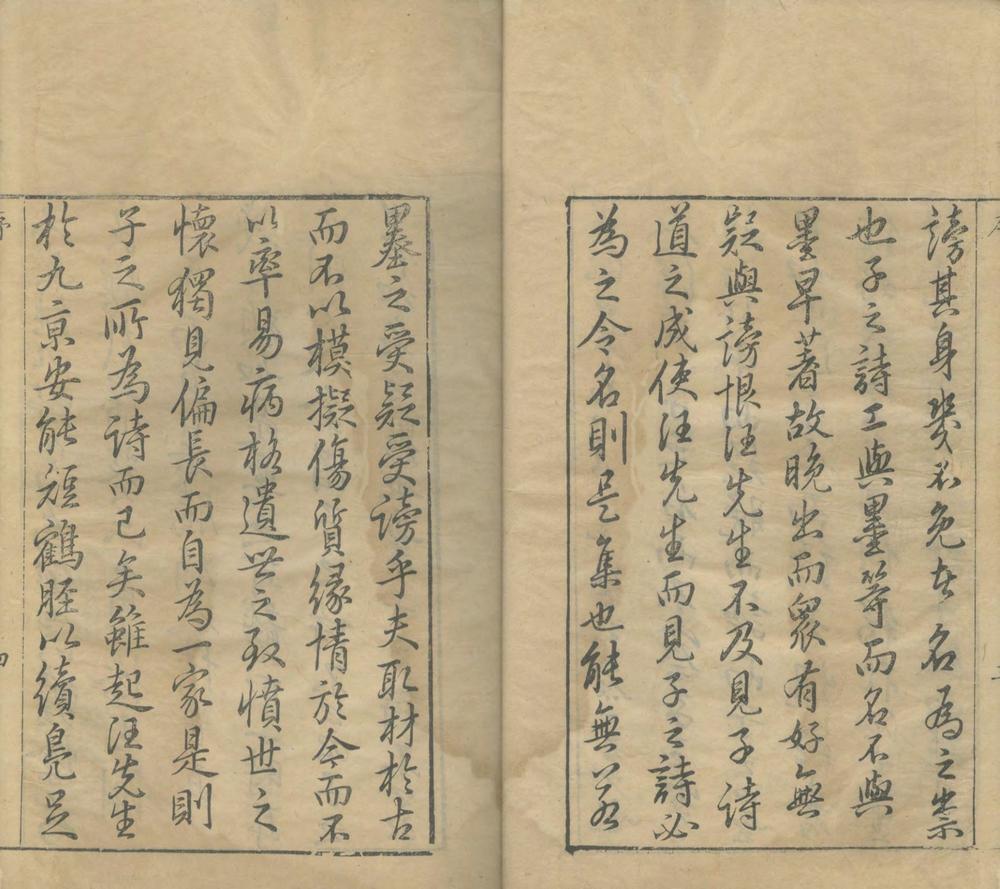 謗其身幾不免者名為之祟
也子之詩工與墨等而名不與
墨早著故晚出而眾有好無
疑與謗恨汪先生不及見子詩
道之成使汪先生而見子之詩必
為之令名則是集也能無若
墨之受疑受謗乎夫取材於古
而不以模擬傷質緣情於今而不
以率易病格遺世之致憤世之
懷獨見偏長而自為一家是則
子之所為詩而已矣雖起汪先生
於九京安能短鶴脛以續鳧足
序
四